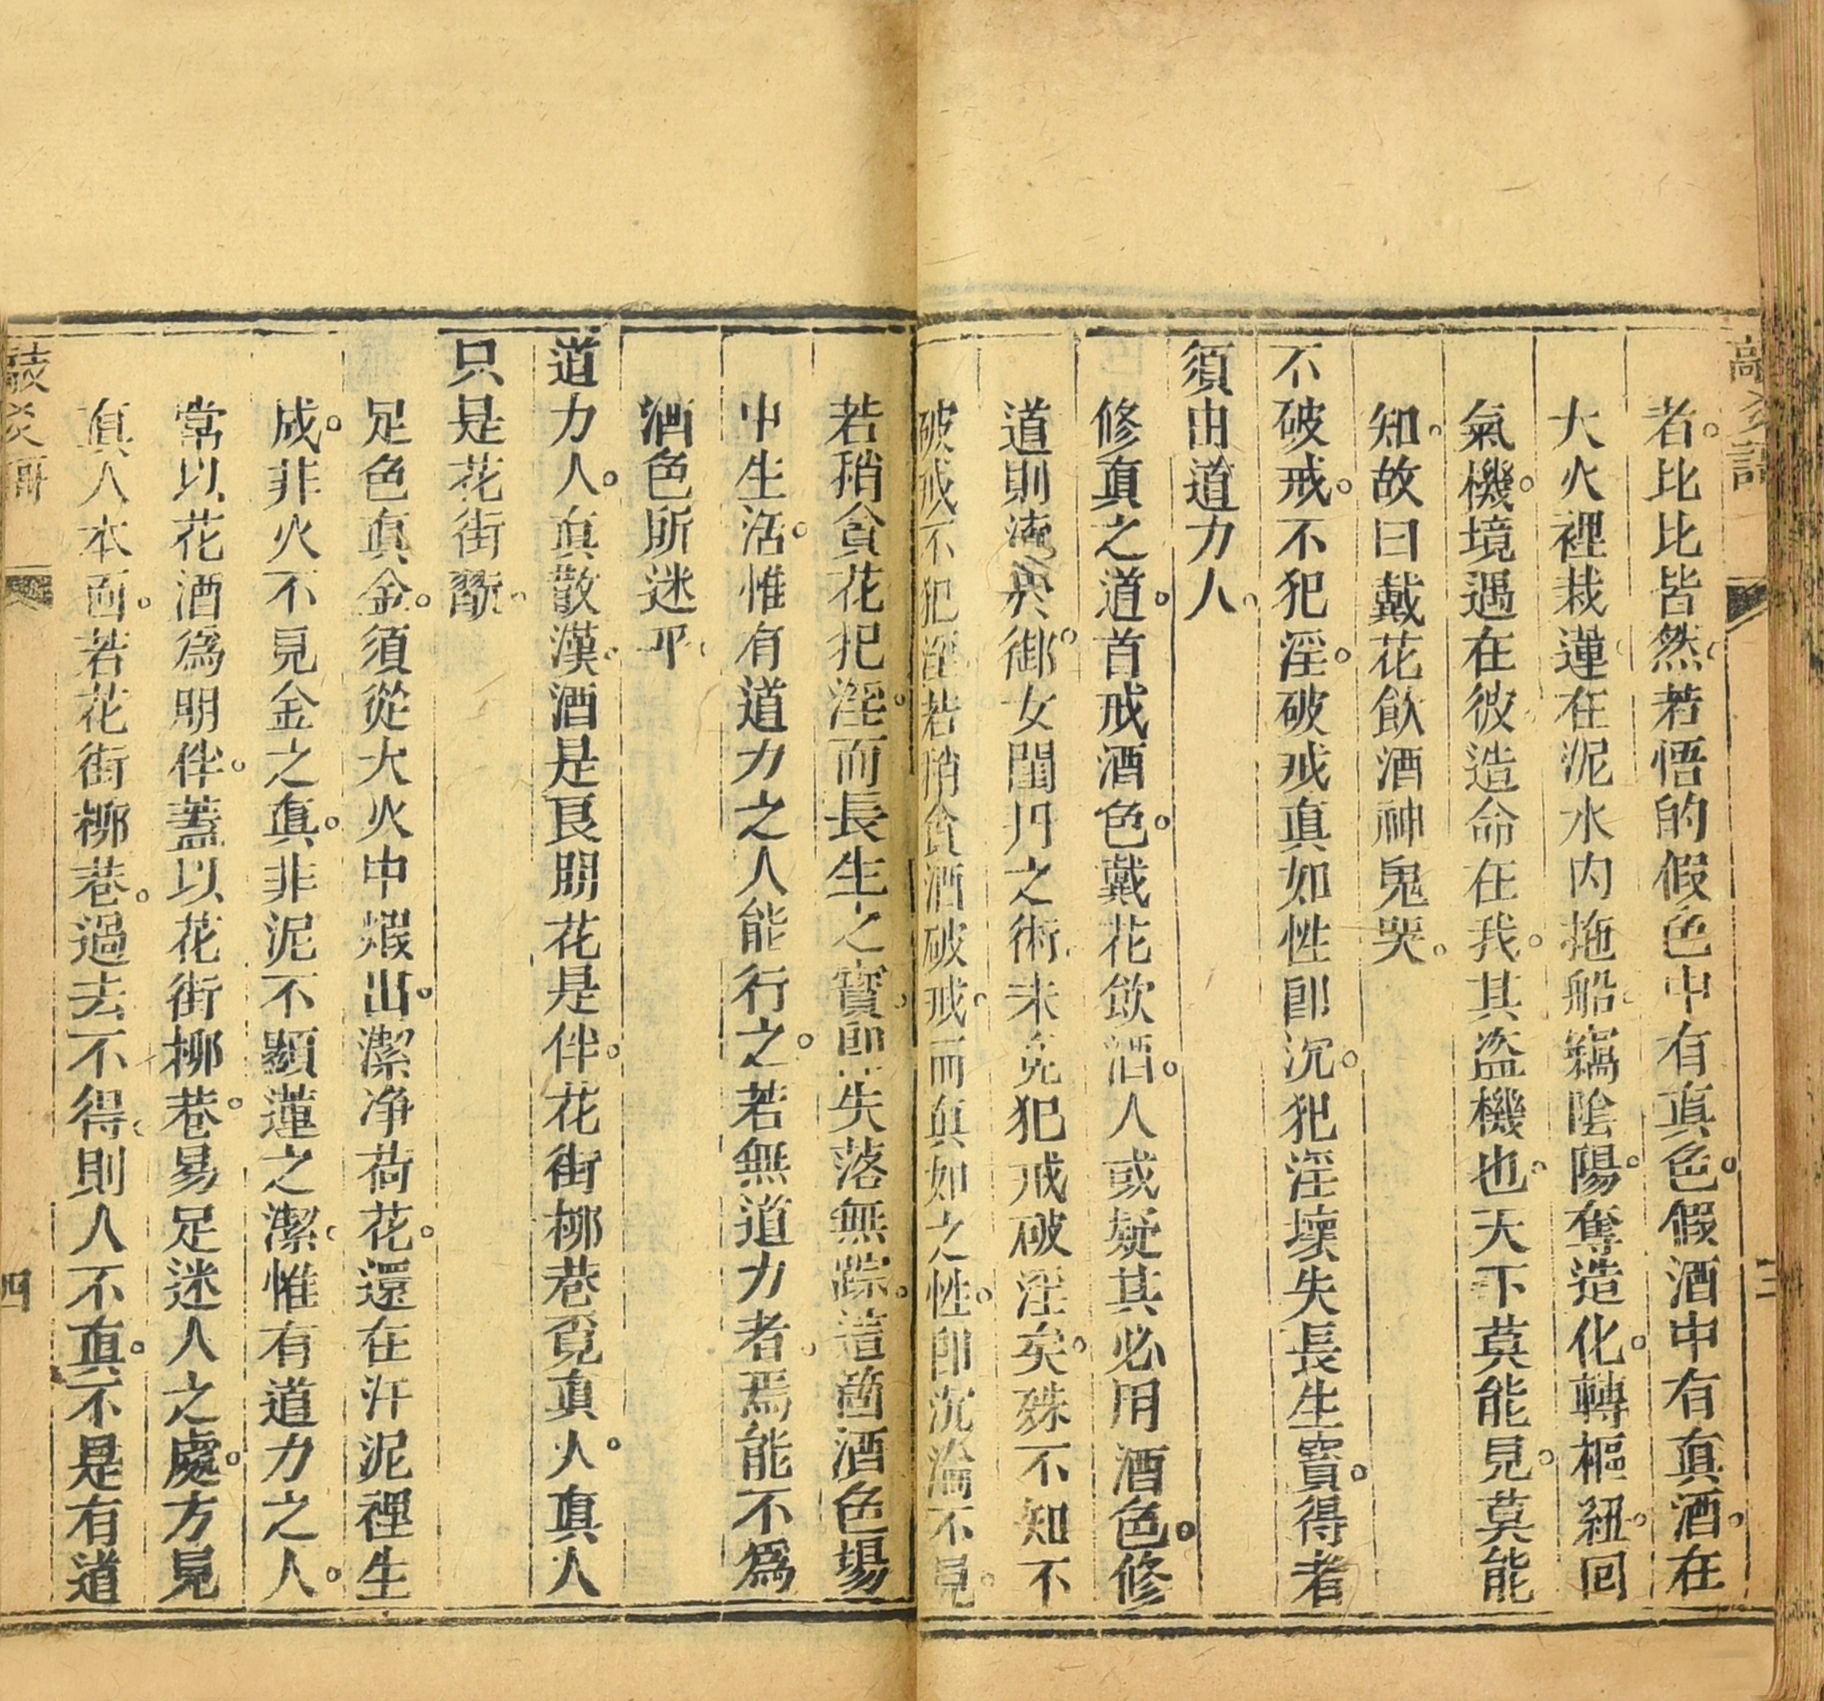 者比比皆然若悟的假色中有真色假酒中有真酒在
大火裡栽蓮在泥水內拖船竊陰陽奪造化轉樞紐回
氣機境遇在彼造命在我其盜機也天下莫能見莫能
知故曰戴花飲酒神鬼哭
不破戒不犯淫破戒真如性卽沉犯淫壞失長生寶得者
須由道力人
修真之道首戒酒色戴花飲酒人或疑其必用酒色修
道則流與御女閨丹之術未免犯戒破淫矣殊不知不
破戒不犯淫若稍貪酒破戒而真如之性卽沉淪不見
若稍貪花犯淫而長生之寶卽失落無踪這箇酒色場
中生活惟有道力之人能行之若無道力者焉能不為
酒色所迷乎
道力人真散漢酒是良朋花是伴花街柳巷覓真人真人
只是花街翫
足色真金須從大火中煅出潔净荷花還在汙泥裡生
成非火不見金之真非泥不顯蓮之潔惟有道力之人
常以花酒為明伴蓋以花街柳巷易足迷人之處方見
真人本面若花街柳巷過去不得則人不真不是有道
敲爻謌
四